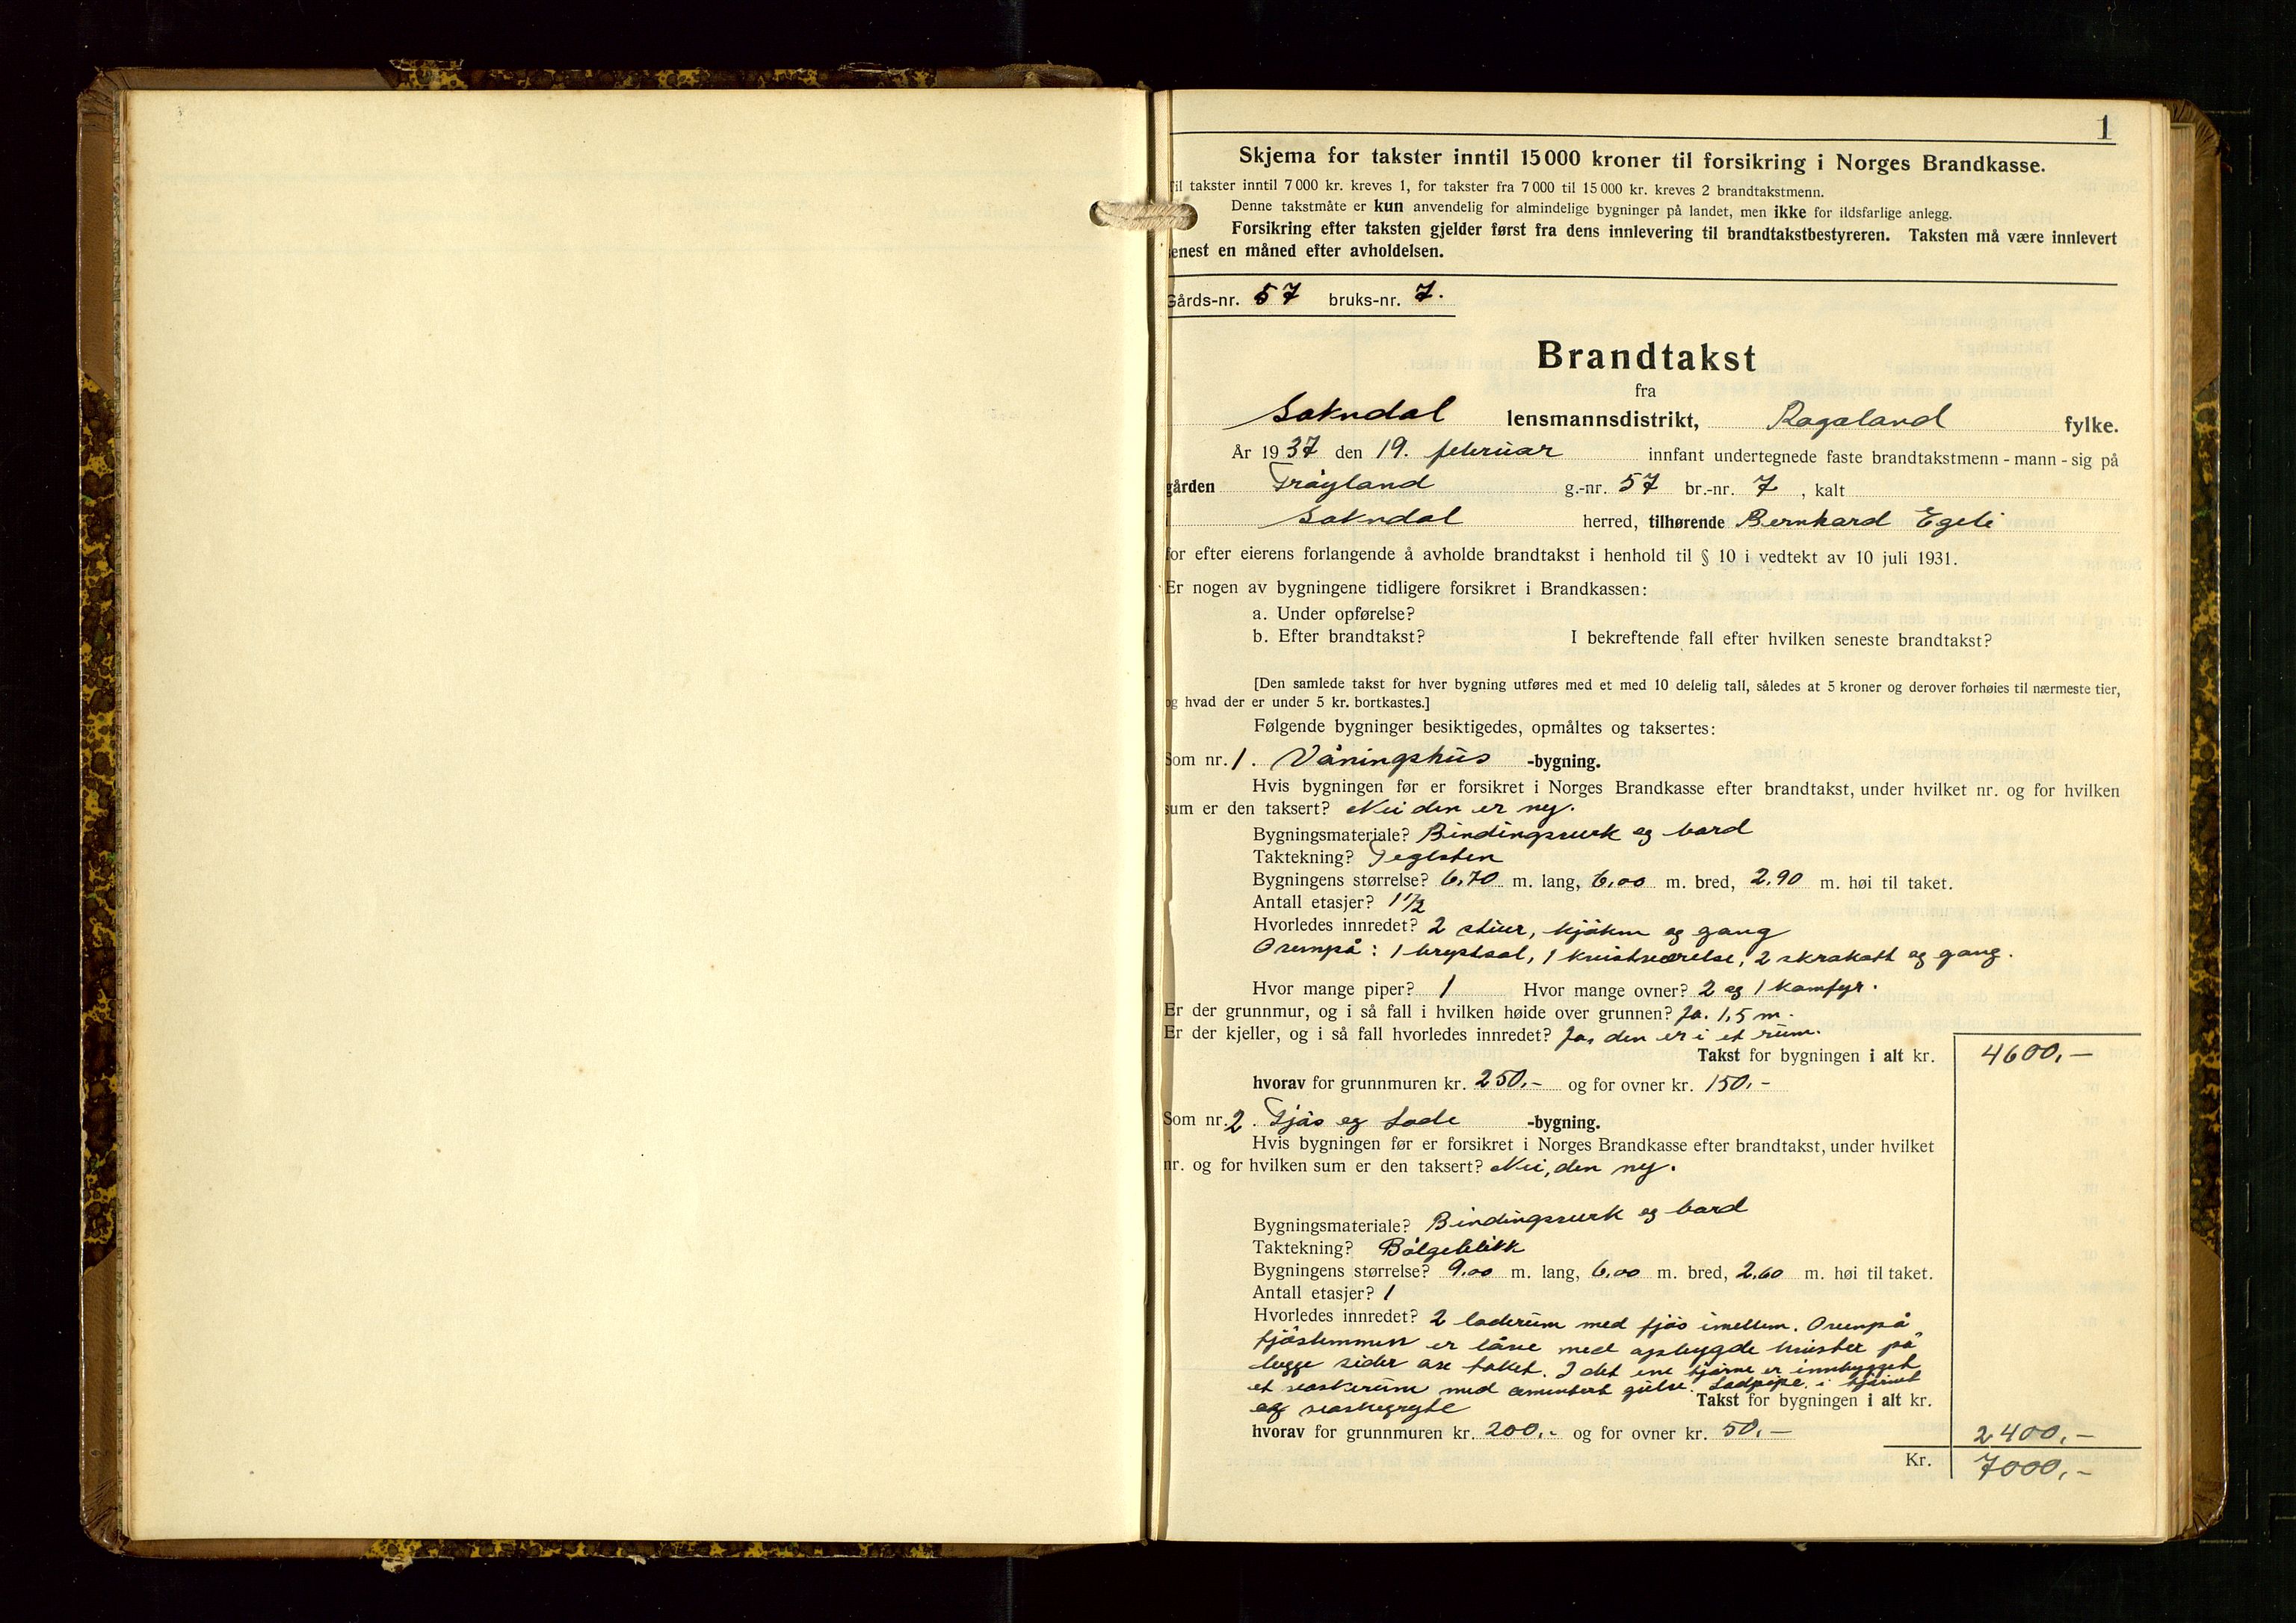 1
Skjema for takster inntil 15 000 kroner til forsikring i Norges Brandkasse.
Til takster inntil 7 000 kr. kreves 1, for takster fra 7 000 til 15 000 kr. kreves 2 brandtakstmenn.
Denne takstmåte er kun anvendelig for almindelige bygninger på landet, men ikke for ildsfarlige anlegg.
Forsikring efter taksten gjelder først fra dens innlevering til brandtakstbestyreren. Taksten må være innlevert
senest en måned efter avholdelsen.
Gårds-nr. 57 bruks-nr. 7.
Brandtakst
fra
Sokndal lensmannsdistrikt, Rogaland fylke.
År 1937 den 19. februar innfant undertegnede faste brandtakstmenn - mann - sig på
gården Frøyland g.-nr. 57 br.-nr. 7, kalt
i Sokndal herred, tilhørende Bernhard Egeli
for efter eierens forlangende å avholde brandtakst i henhold til § 10 i vedtekt av 10 juli 1931.
Er nogen av bygningene tidligere forsikret i Brandkassen:
a. Under opførelse?
b. Efter brandtakst? I bekreftende fall efter hvilken seneste brandtakst?
[Den samlede takst for hver bygning utføres med et med 10 delelig tall, således at 5 kroner og derover forhøies til nærmeste tier,
og hvad der er under 5 kr. bortkastes.]
Følgende bygninger besiktigedes, opmåltes og taksertes:
Som nr. 1. Våningshus -bygning.
Hvis bygningen før er forsikret i Norges Brandkasse efter brandtakst, under hvilket nr. og for hvilken
sum er den taksert? Nei den er ny.
Bygningsmateriale? Bindingsverk og bord
Taktekning? Teglsten
Bygningens størrelse? 6,70 m. lang, 6,00 m. bred, 2,90 m. høi til taket.
Antall etasjer? 1 1/2
Hvorledes innredet? 2 stuer, kjøken og gang
Ovenpå: 1 brystsal, 1 kvistværelse, 2 skrakott og gang.
Hvor mange piper? 1 Hvor mange ovner? 2 og 1 komfyr.
Er der grunnmur, og i så fall i hvilken høide over grunnen? Ja. 1,5 m.
Er der kjeller, og i så fall hvorledes innredet? Ja, den er i et rum.
Takst for bygningen i alt kr. 4600,-
hvorav for grunnmuren kr. 250,- og for ovner kr. 150,-
Som nr. 2. Fjøs og Lade -bygning.
Hvis bygningen før er forsikret i Norges Brandkasse efter brandtakst, under hvilket
nr. og for hvilken sum er den taksert? Nei, den ny.
Bygningsmateriale? Bindingsverk og bord
Taktekning? Bølgeblikk
Bygningens størrelse? 9,00 m. lang, 6,00 m. bred, 2,60 m. høi til taket.
Antall etasjer? 1
Hvorledes innredet? 2 laderum med fjøs imellem. Ovenpå
fjøslemmen er låve med opbygde kvister på
begge sider av taket. I det ene hjørne er innbygget
et vaskerum med sementert gulv. Ladpipe i hjørnet
og vaskegryte
Takst for bygningen i alt kr.
hvorav for grunnmuren kr. 200,- og for ovner kr. 50,- 2400,-
Kr. 7000,-